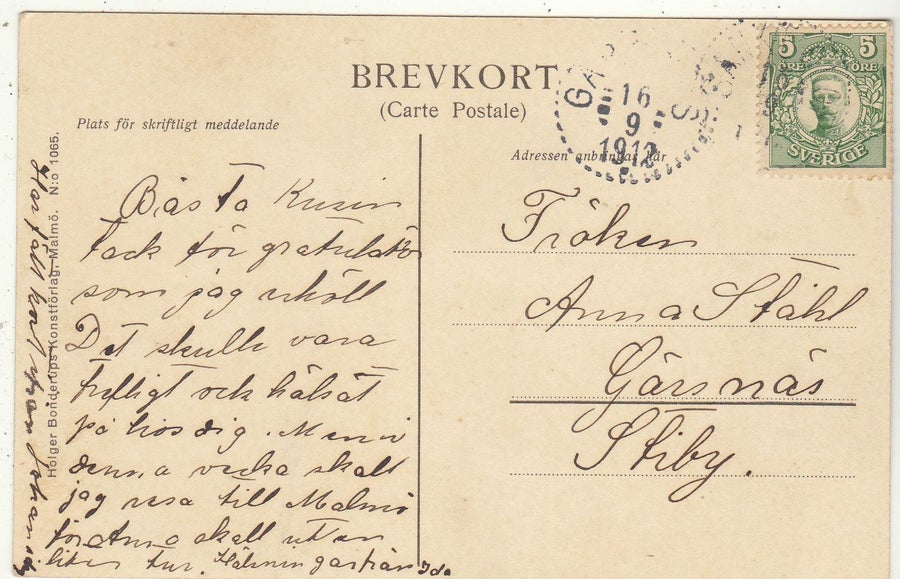 BREVKORT
(Carte Postale)
Plats för skriftligt meddelande
Adressen anbringas här
5 5
ÖRE ÖRE
SVERIGE
16
9
1912
Bästa Kusin
tack för gratulation
som jag erhöll
Det skulle vara
trefligt och hälsat
på hos dig. Men i
denna vecka skall
jag resa till Malmö
för Anna skall ut en
liten tur. Hälsningar från Ida
Har fått kort från Johan
Fröken
Anna Ståhl
Gärsnäs
Stiby.
Holger Bonderups Konstförlag, Malmö. N:o 1065.